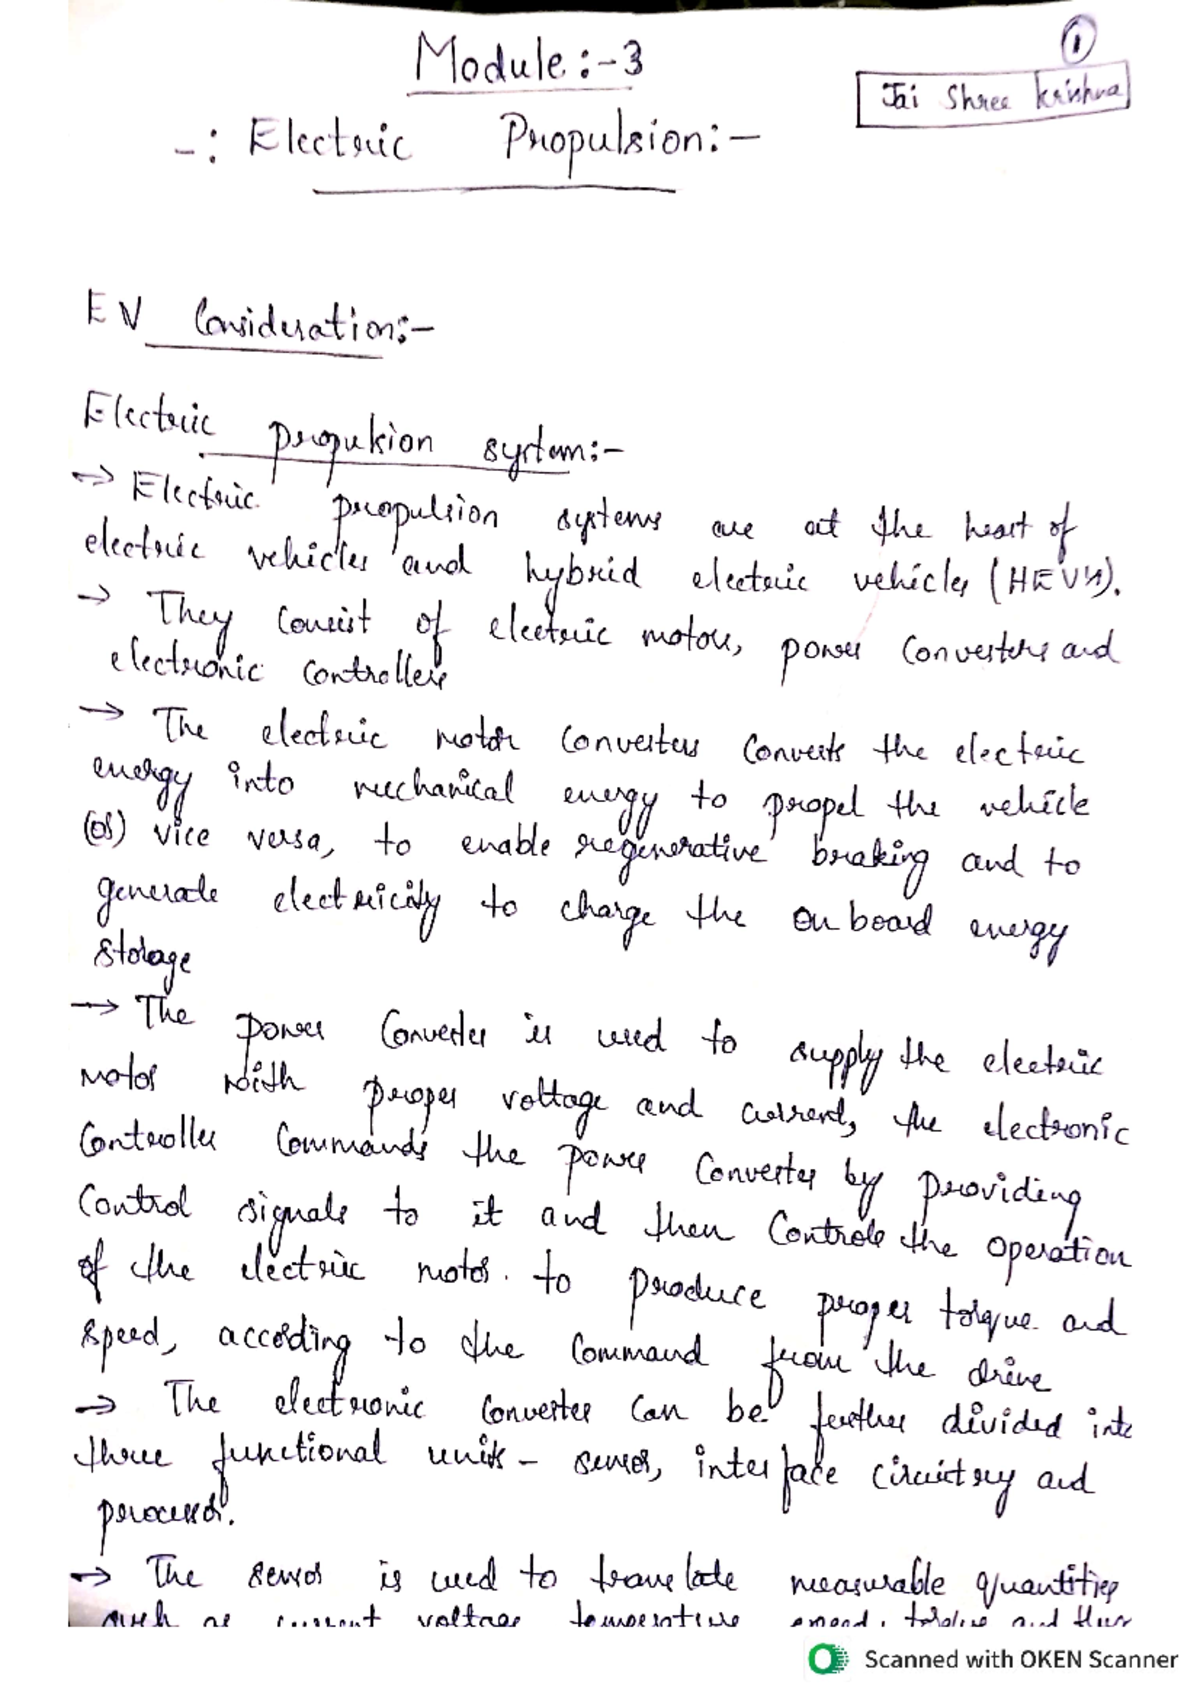 ①
Module:-3
Jai Shree Krishna
-: Electric Propulsion:-
EV Consideration:-
Electric propulsion system:-
→ Electric propulsion systems are at the heart of
electric vehicles and hybrid electric vehicles (HEV's).
→ They consist of electric motors, power converters and
electronic controllers
→ The electric motor converters converts the electric
energy into mechanical energy to propel the vehicle
(or) vice versa, to enable regenerative braking and to
generate electricity to charge the on board energy
storage
→ The power converter is used to supply the electric
motor with proper voltage and current, the electronic
controller commands the power converter by providing
control signals to it and then controls the operation
of the electric motor. to produce proper torque and
speed, according to the command from the drive
→ The electronic converter can be further divided into
three functional units - sensor, interface circuitry and
processor.
→ The sensor is used to translate measurable quantities
such as current voltage temperature speed, torque and flux
Scanned with OKEN Scanner